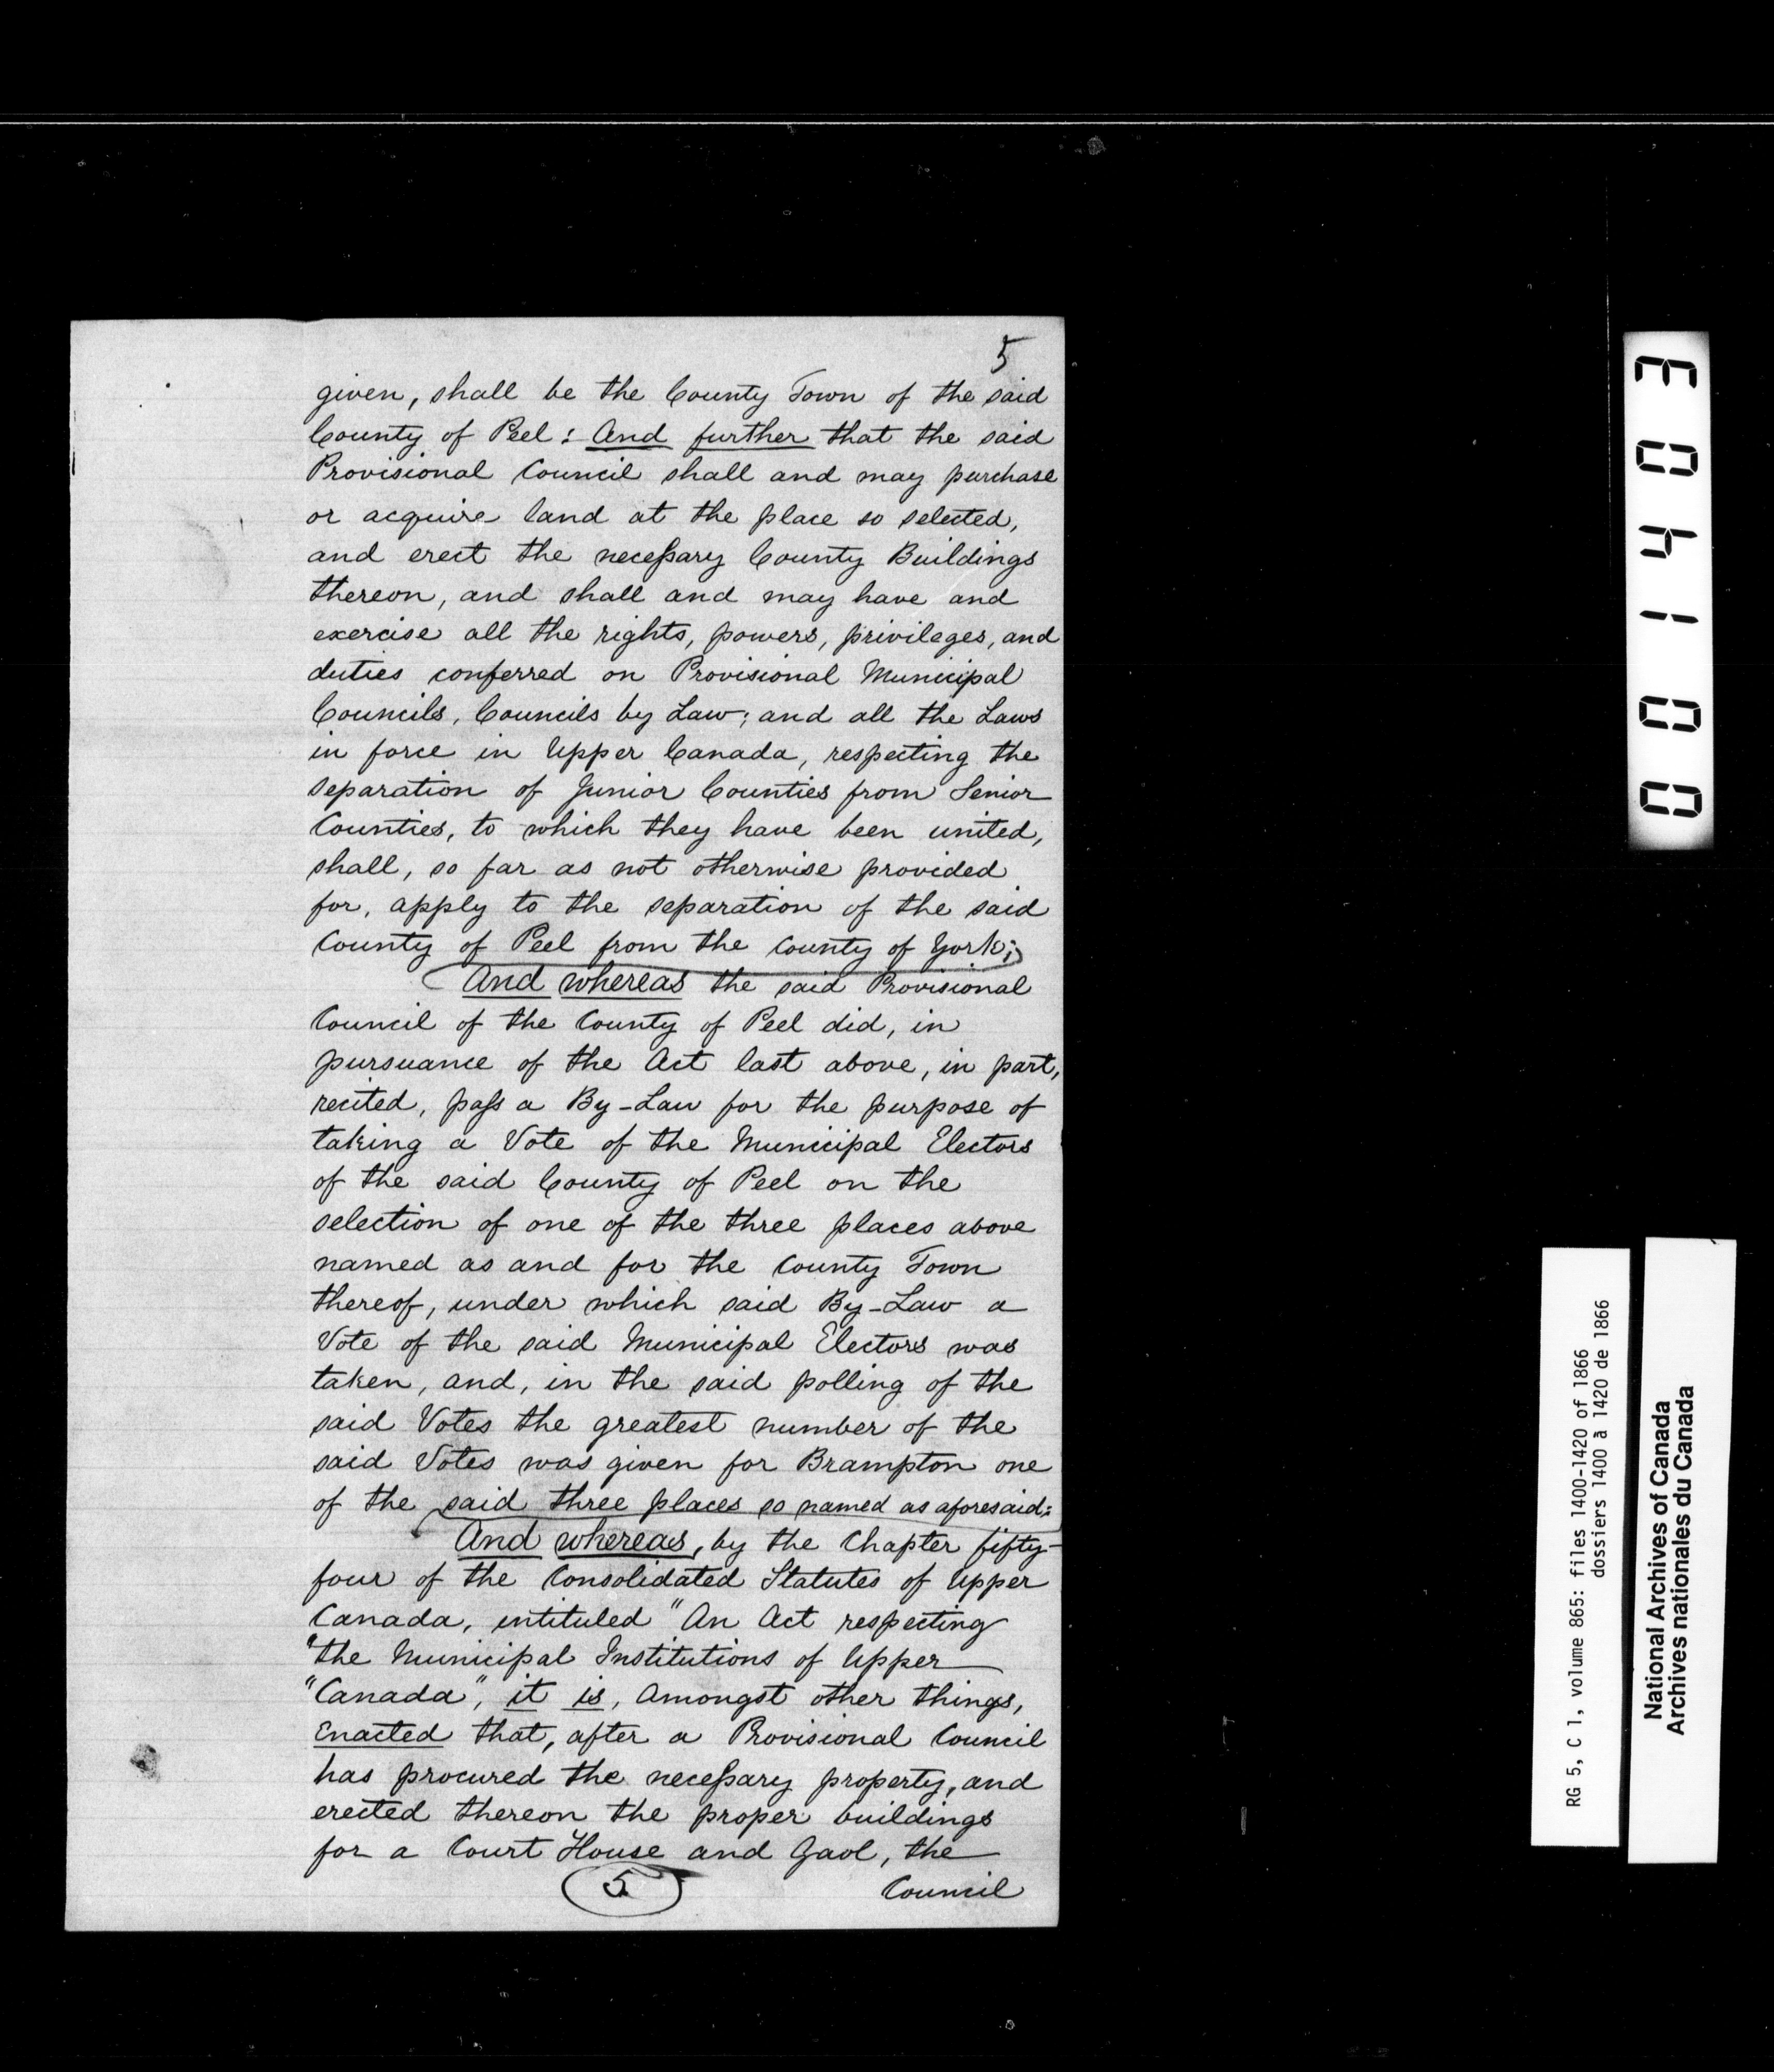 5
given, shall be the County Town of the said
County of Peel: And further that the said
Provisional Council shall and may purchase
or acquire land at the place so selected,
and erect the necessary County Buildings
thereon, and shall and may have and
exercise all the rights, powers, privileges, and
duties conferred on Provisional Municipal
Councils, Councils by Law; and all the Laws
in force in Upper Canada, respecting the
separation of Junior Counties from Senior
Counties, to which they have been united,
shall, so far as not otherwise provided
for, apply to the separation of the said
County of Peel from the County of York;
And whereas the said Provisional
Council of the County of Peel did, in
pursuance of the Act last above, in part,
recited, pass a By-Law for the purpose of
taking a Vote of the Municipal Electors
of the said County of Peel on the
selection of one of the three places above
named as and for the County Town
thereof, under which said By-Law a
Vote of the said Municipal Electors was
taken, and, in the said polling of the
said Votes the greatest number of the
said Votes was given for Brampton one
of the said three places so named as aforesaid:
And whereas, by the Chapter fifty-
four of the Consolidated Statutes of Upper
Canada, entituled "An Act respecting
"the Municipal Institutions of Upper
"Canada", it is, amongst other things,
Enacted that, after a Provisional Council
has procured the necessary property, and
erected thereon the proper buildings
for a Court House and Gaol, the
5
Council
001403
RG 5, C 1, volume 865: files 1400-1420 of 1866
dossiers 1400 à 1420 de 1866
National Archives of Canada
Archives nationales du Canada